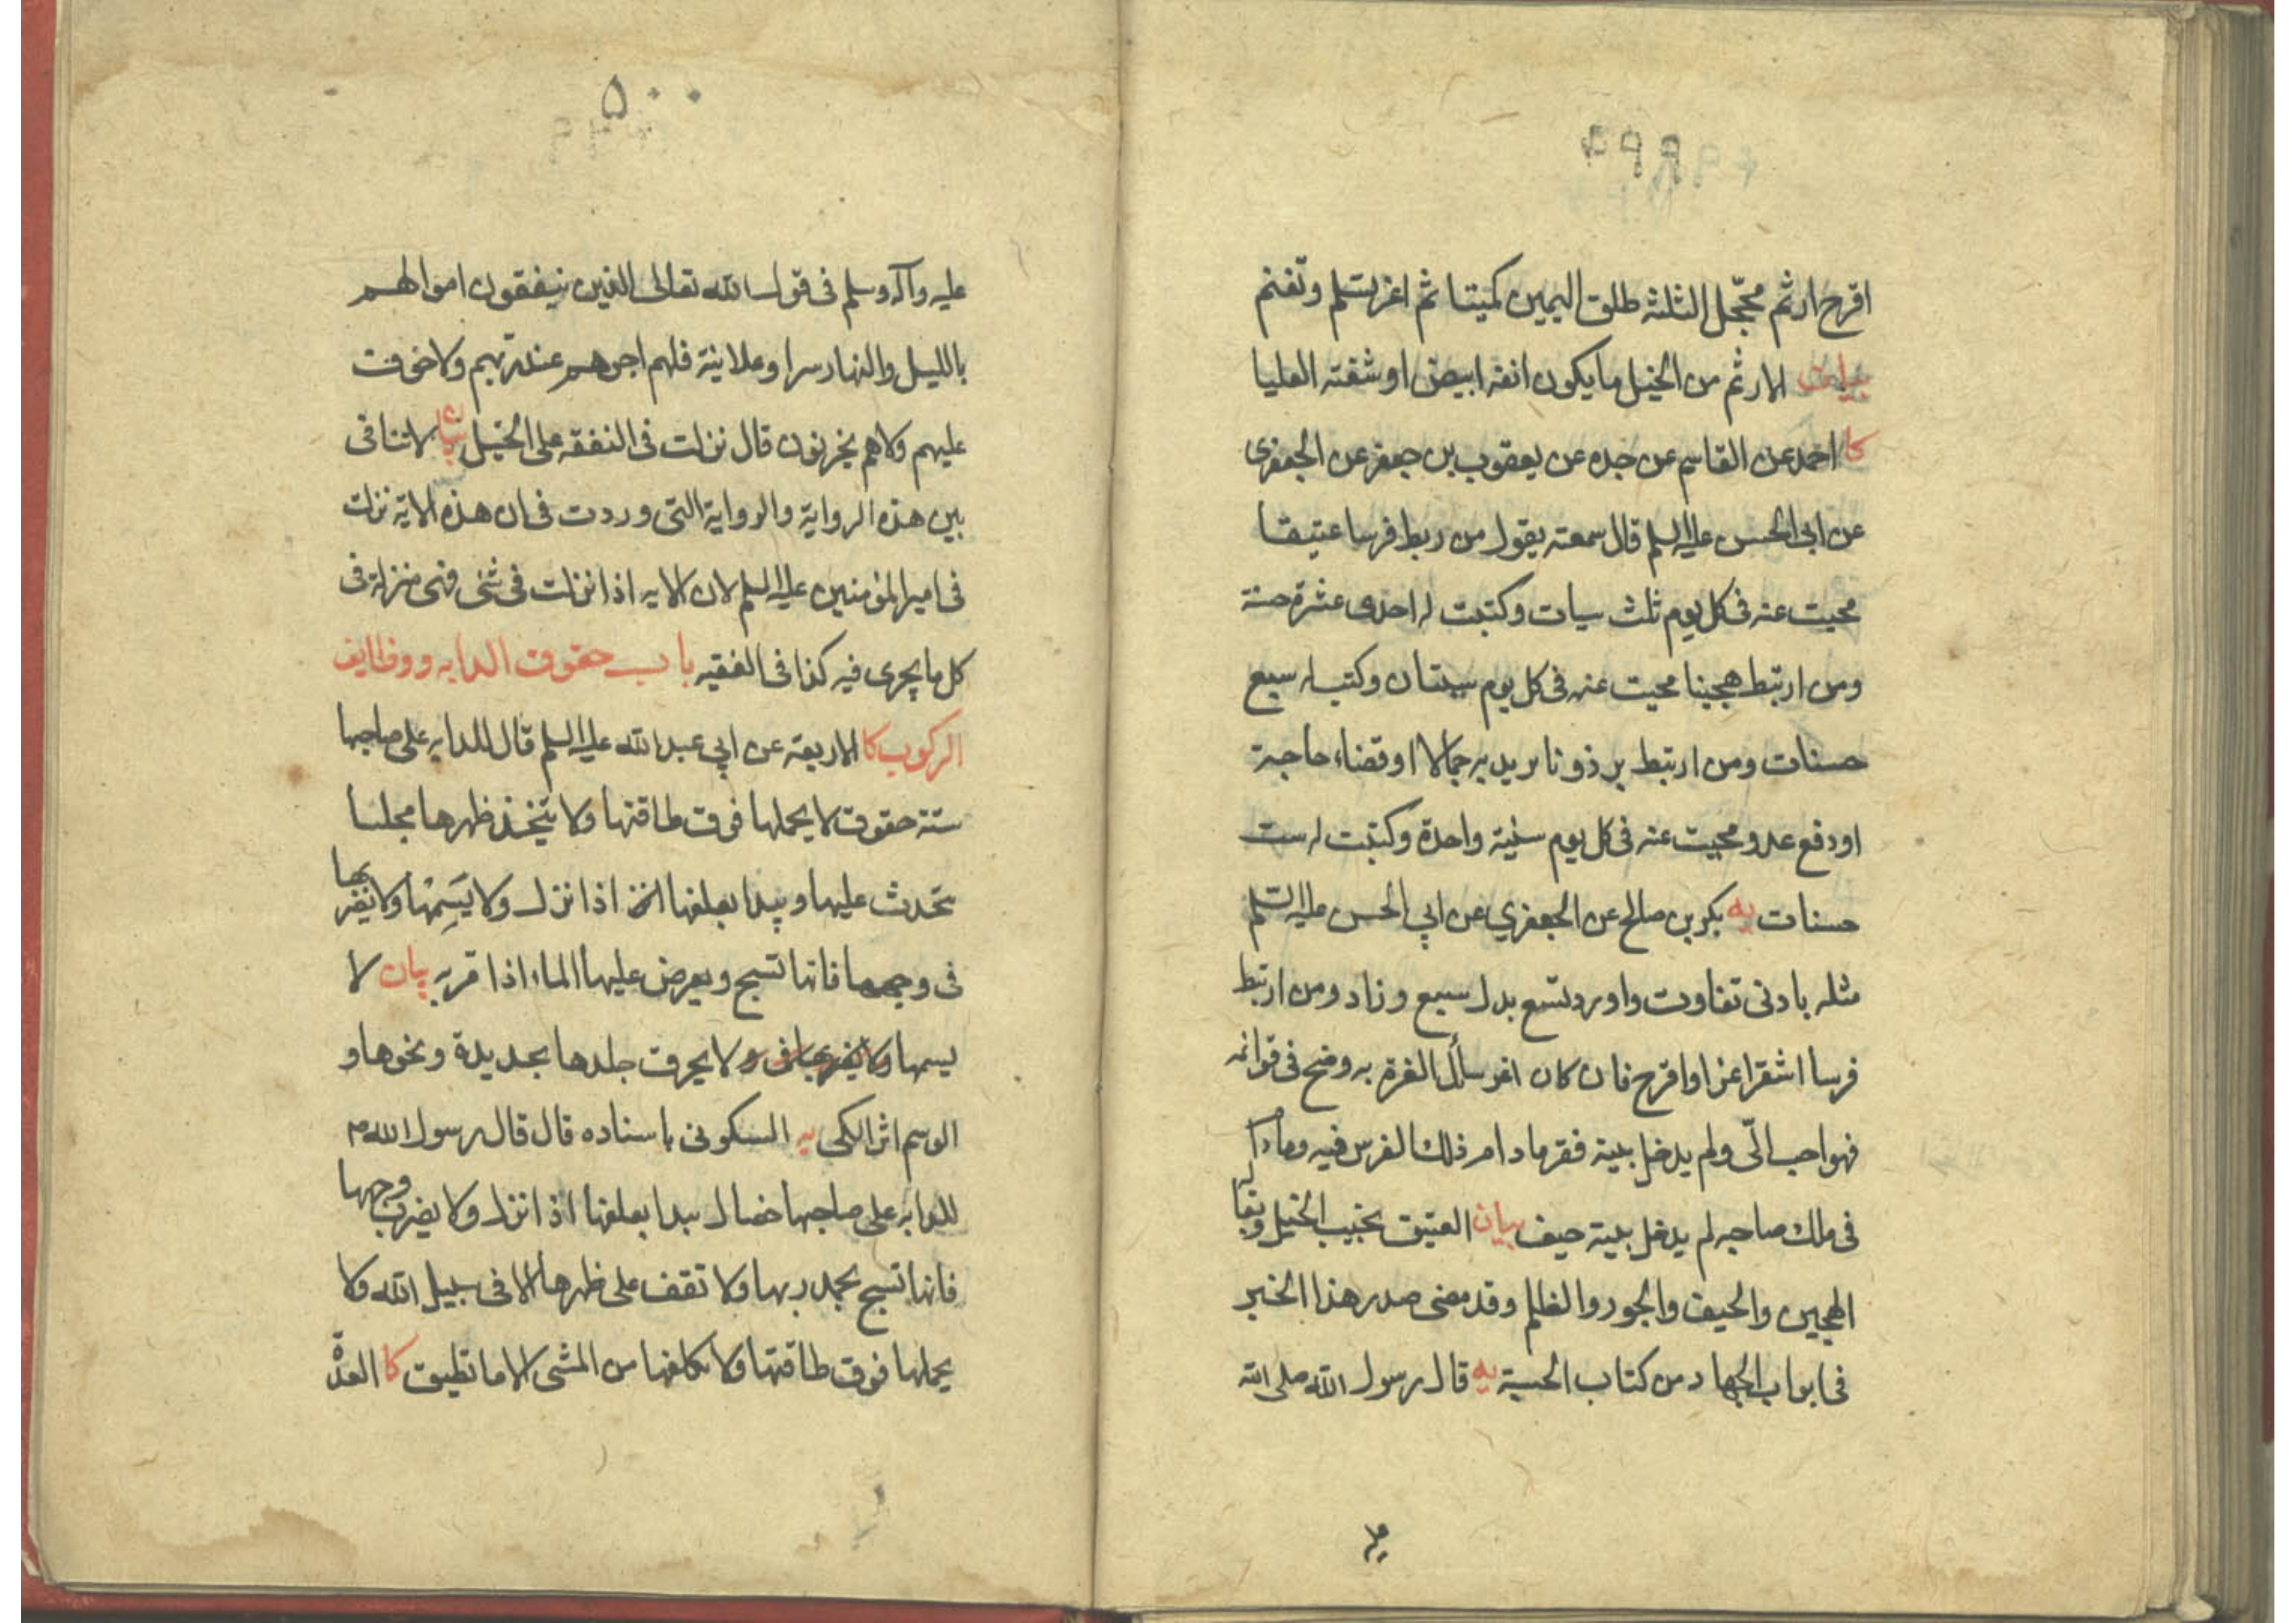 ۴۹۹
اقرح ارثم محجّل الثلثه طلق اليمين كميتا ثم اغر تسلم وتغنم
بيان الارثم من الخيل ما يكون انفه ابيض او شفته العليا
كا احمد عن القاسم عن جده عن يعقوب بن جعفر عن الجعفرى
عن ابى الحسن عليه السلم قال سمعته يقول من ربط فرسا عتيقا
محيت عنه فى كل يوم ثلث سيات وكتبت له احدى عشرة حسنة
ومن ارتبط هجينا محيت عنه فى كل يوم سيتان وكتب له سبع
حسنات ومن ارتبط برذونا يريد به جمالا او قضاء حاجة
او دفع عدو محيت عنه فى كل يوم سيئة واحدة وكتبت له ست
حسنات يه بكر بن صالح عن الجعفري عن ابي الحسن عليه السّلم
مثله بادنى تفاوت واورد تسع بدل سبع وزاد ومن ارتبط
فرسا اشقر اغر او اقرح فان كان اغر سائل الغرة به وضح فى قوائمه
فهو احب الىّ ولم يدخل بيته فقر مادام ذلك الفرس فيه ومادام
فى ملك صاحبه لم يدخل بيته حيف بيان العتيق نجيب الخيل ويقابله
الهجين والحيف والجور والظلم وقد مضى صدر هذا الخبر
فى ابواب الجهاد من كتاب الحسبة يه قال رسول الله صلى الله
۵۰۰
عليه وآله وسلم فى قول الله تعالى الذين ينفقون اموالهم
بالليل والنهار سرا وعلانية فلهم اجرهم عند ربهم ولا خوف
عليهم ولا هم يحزنون قال نزلت فى النفقه على الخيل بيان لا تنافى
بين هذه الرواية والرواية التى وردت فى ان هذه الاية نزلت
فى امير المؤمنين عليه السلم لان الايه اذا نزلت فى شئ فهى منزلة فى
كل ما يجرى فيه كذا فى الفقيه باب حقوق الدابه ووظايف
الركوب كا الاربعة عن ابي عبد الله عليه السلم قال للدابه على صاحبها
ستة حقوق لا يحملها فوق طاقتها ولا يتخذ ظهرها مجلسا
يتحدث عليها ويبدا بعلفها اذا نزل ولا يَسِمْها ولا يضربها
فى وجهها فانها تسبح ويعرض عليها الماء اذا مر به بيان لا
يسمها ولا يضربها فى ولا يحرق جلدها بحديدة ونحوها و
الوسم اثر الكى يه السكونى باسناده قال قال رسول الله ص
للدابه على صاحبها خصال يبدا بعلفها اذا نزل ولا يضرب وجهها
فانها تسبح بحمد ربها ولا تقف على ظهرها الا فى سبيل الله ولا
يحملها فوق طاقتها ولا يكلفها من المشى الا ما تطيق كا العدّة